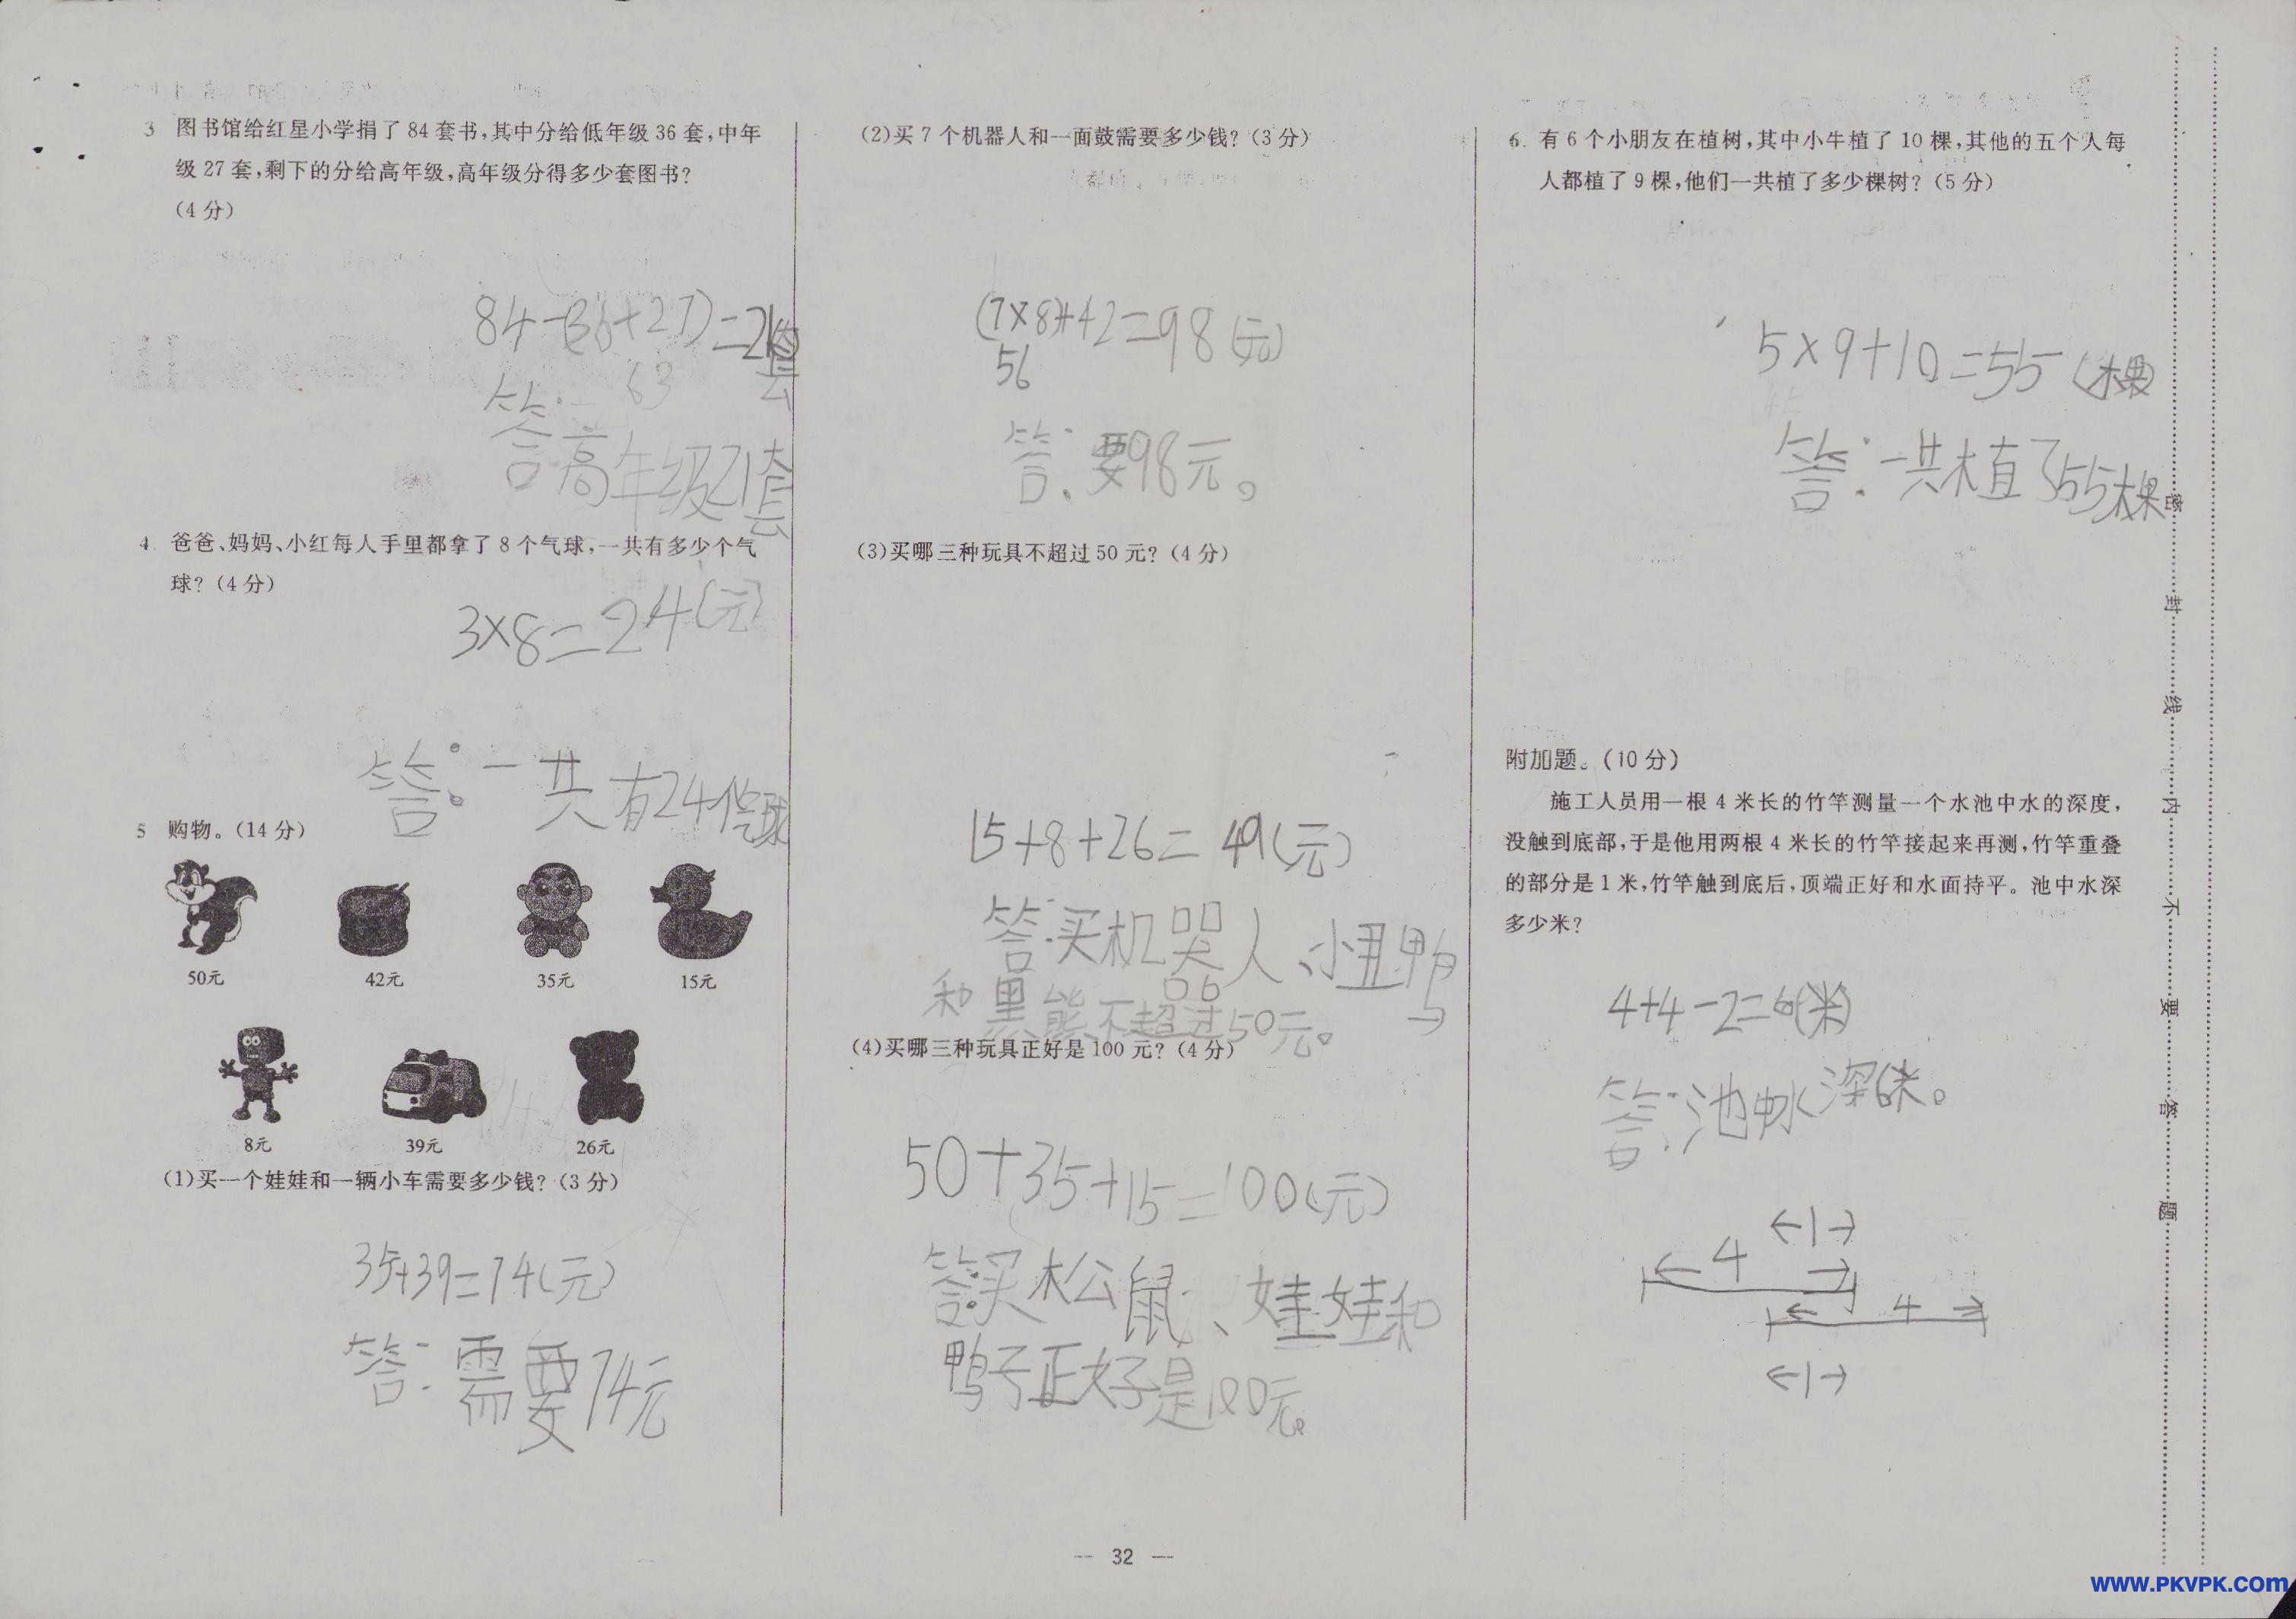 3 图书馆给红星小学捐了 84 套书,其中分给低年级 36 套,中年
级 27 套,剩下的分给高年级,高年级分得多少套图书?
(4 分)
84-(36+27)=21(套)
63
答:高年级21套
4 爸爸、妈妈、小红每人手里都拿了 8 个气球,一共有多少个气
球?(4 分)
3×8=24(元)
答:一共有24个气球
5 购物。(14 分)
50元 42元 35元 15元
8元 39元 26元
(1)买一个娃娃和一辆小车需要多少钱?(3 分)
35+39=74(元)
答:需要74元
(2)买 7 个机器人和一面鼓需要多少钱?(3 分)
(7×8)+42=98(元)
56
答:要98元。
(3)买哪三种玩具不超过 50 元?(4 分)
15+8+26=49(元)
答:买机器人、小丑鸭
和黑熊不超过50元。
(4)买哪三种玩具正好是 100 元?(4 分)
50+35+15=100(元)
答:买松鼠、娃娃和
鸭子正好是100元。
6. 有 6 个小朋友在植树,其中小牛植了 10 棵,其他的五个人每
人都植了 9 棵,他们一共植了多少棵树?(5 分)
5×9+10=55(棵)
45
答:一共植了55棵
附加题。(10 分)
施工人员用一根 4 米长的竹竿测量一个水池中水的深度,
没触到底部,于是他用两根 4 米长的竹竿接起来再测,竹竿重叠
的部分是 1 米,竹竿触到底后,顶端正好和水面持平。池中水深
多少米?
4+4-2=6(米)
答:池中水深6米。
←1→
←4→
←4→
←1→
密封线内不要答题
— 32 —
www.PKVPK.com